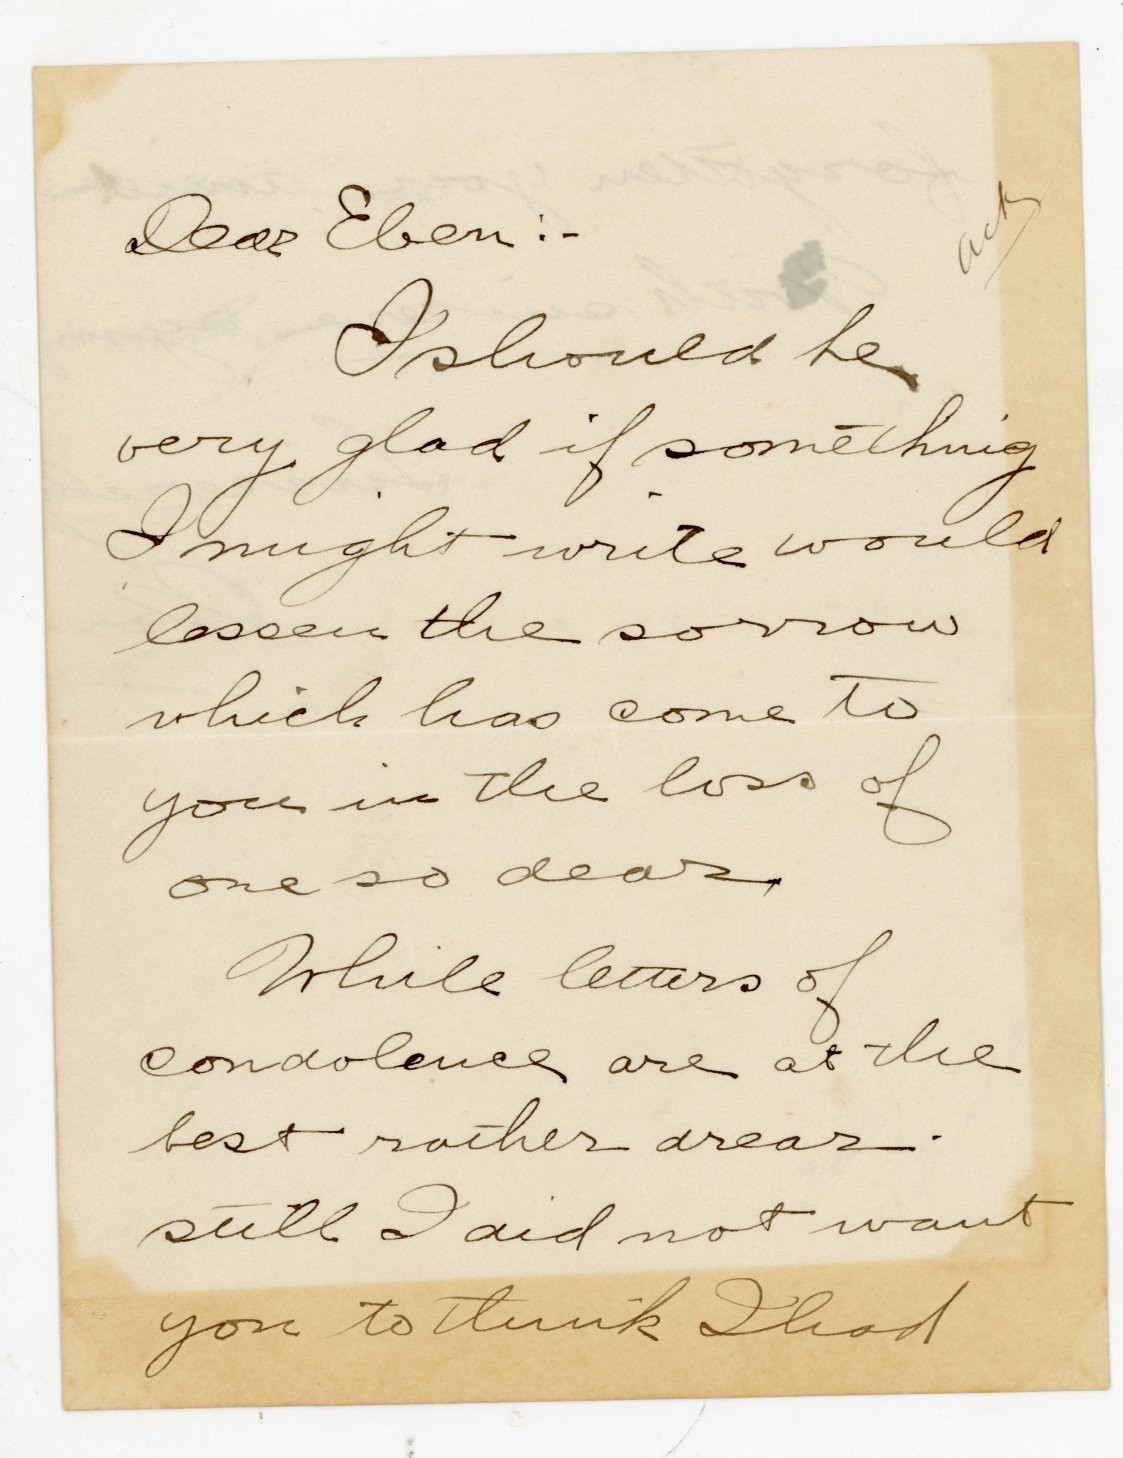 Dear Eben :-
ack
I should be
very glad if something
I might write would
lessen the sorrow
which has come to
you in the loss of
one so dear.
While letters of
condolence are at the
best rather drear.
still I did not want
you to think I had